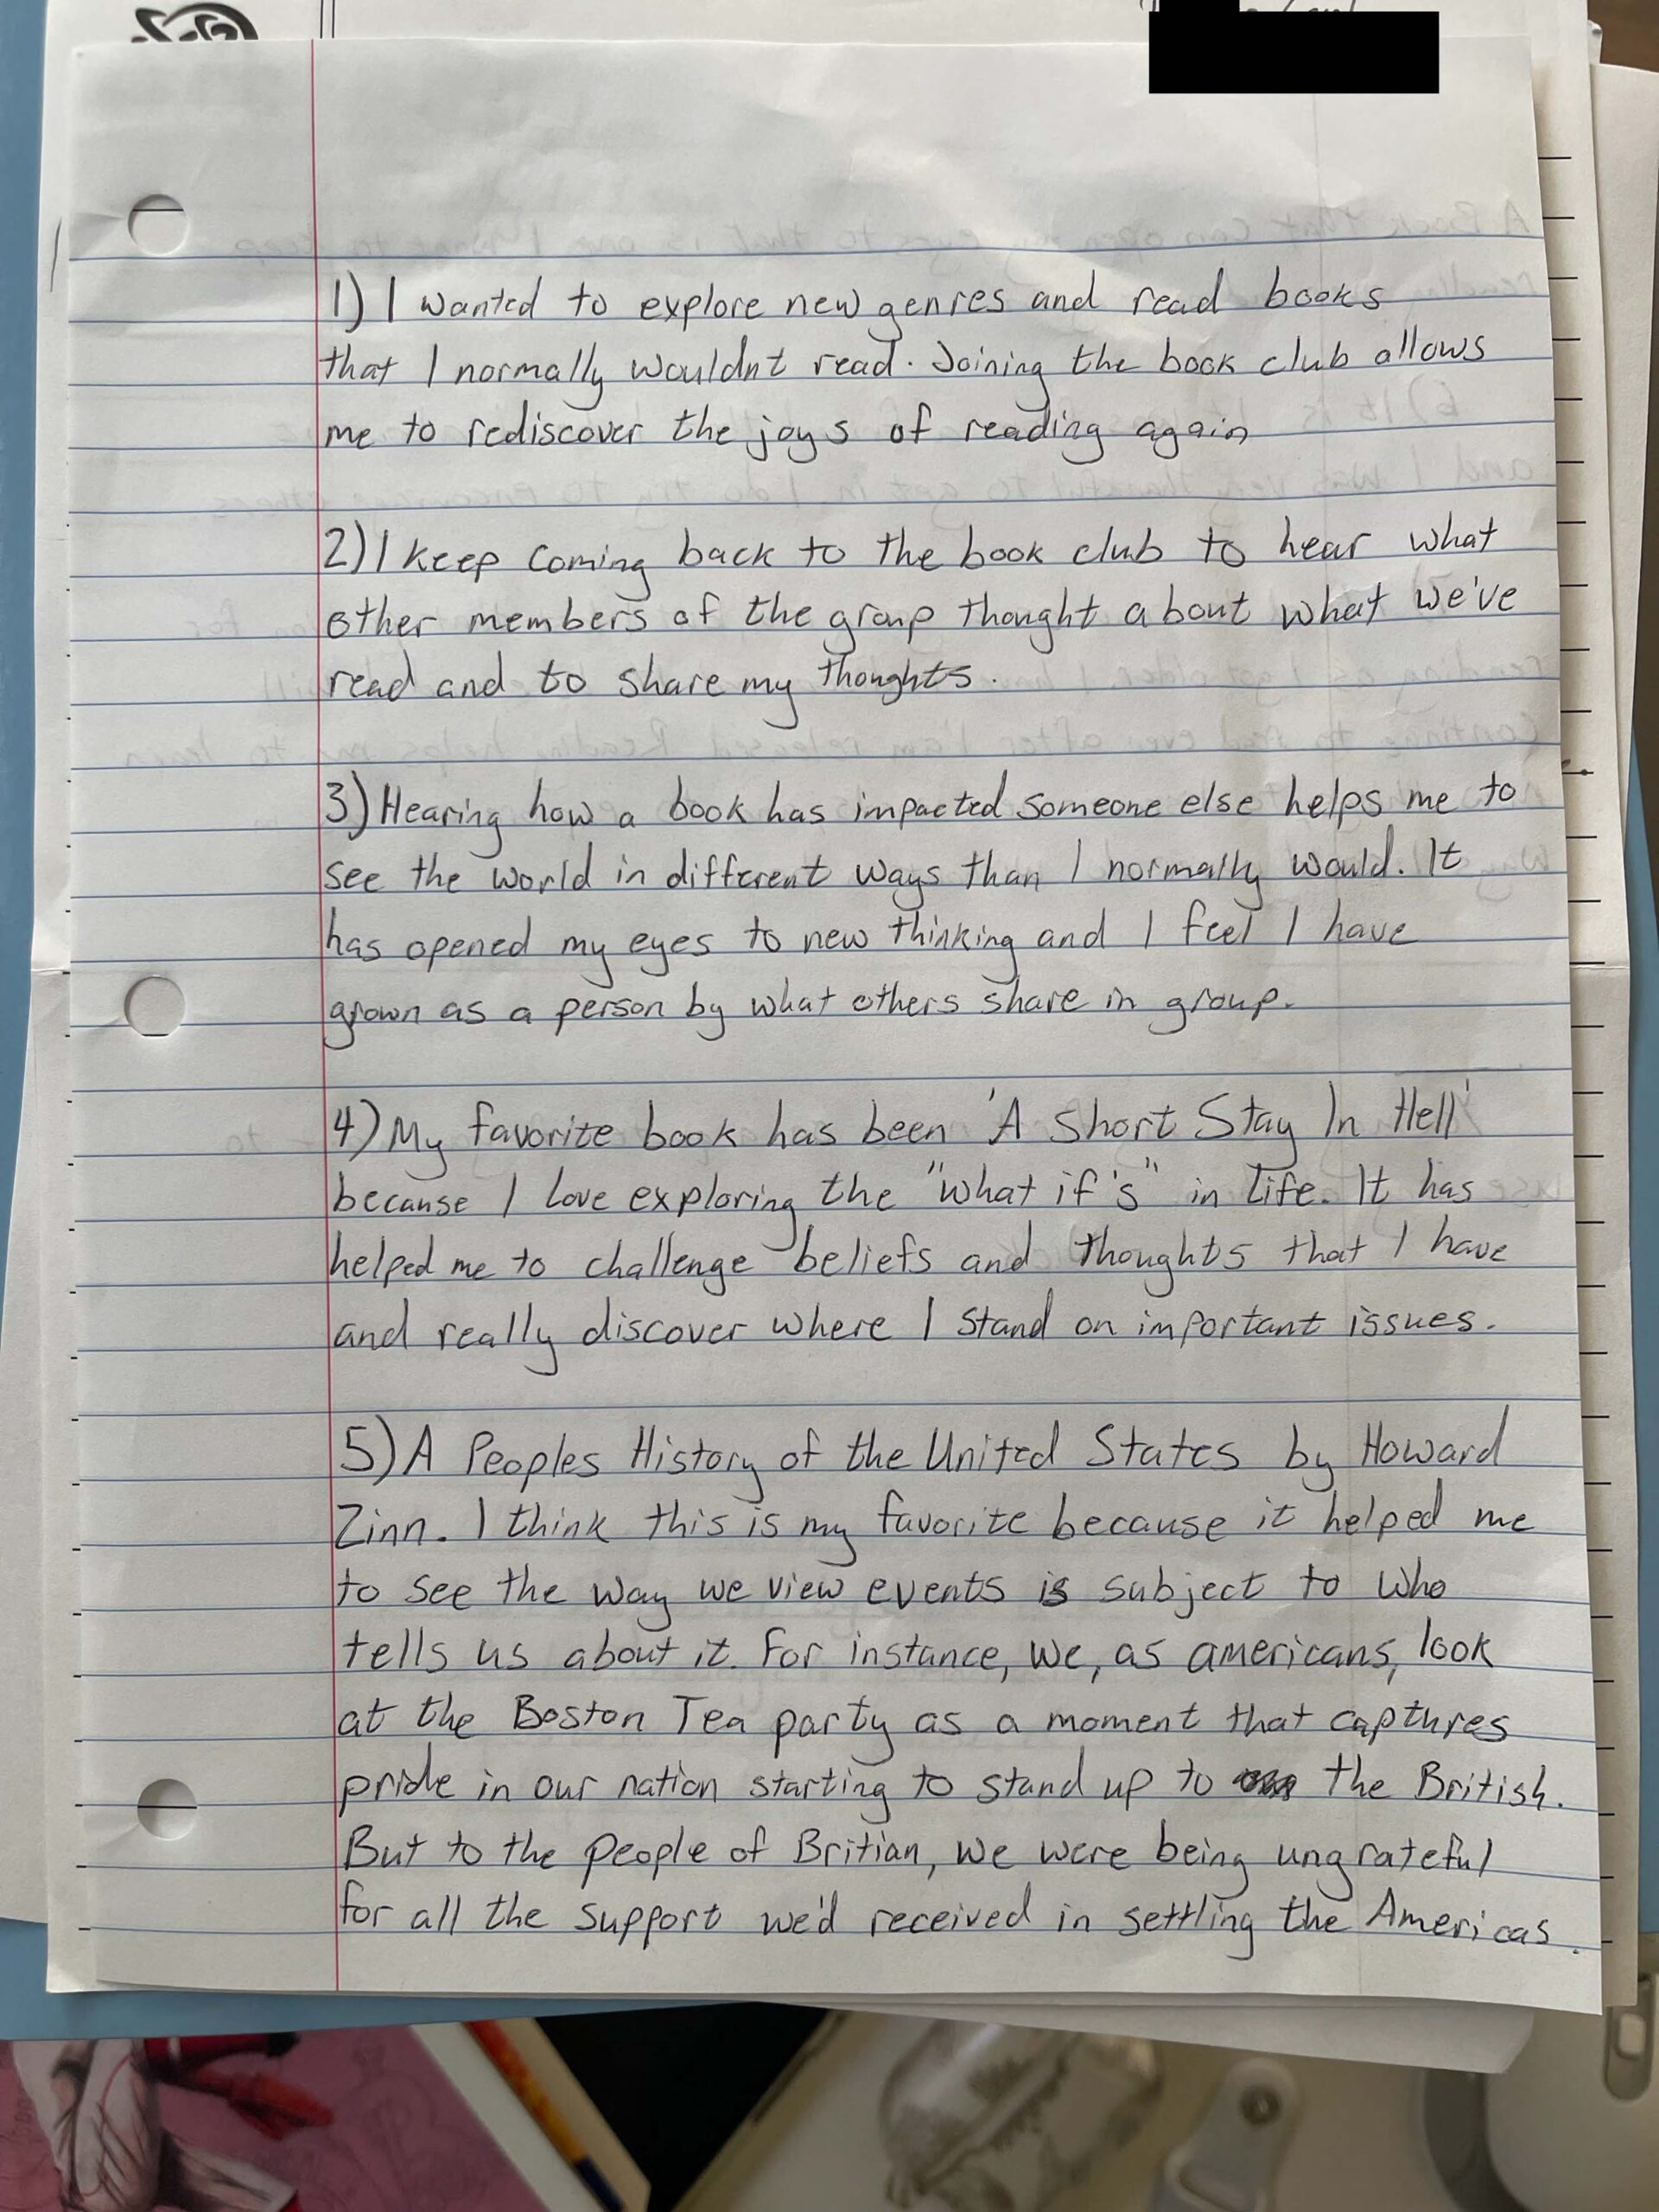 1) I wanted to explore new genres and read books
that I normally wouldnt read. Joining the book club allows
me to rediscover the joys of reading again
2) I keep coming back to the book club to hear what
other members of the group thought about what we've
read and to share my thoughts.
3) Hearing how a book has impacted someone else helps me to
see the world in different ways than I normally would. It
has opened my eyes to new thinking and I feel I have
grown as a person by what others share in group.
4) My favorite book has been 'A Short Stay In Hell'
because I love exploring the "what if's" in life. It has
helped me to challenge beliefs and thoughts that I have
and really discover where I stand on important issues.
5) A Peoples History of the United States by Howard
Zinn. I think this is my favorite because it helped me
to see the way we view events is subject to who
tells us about it. For instance, we, as americans, look
at the Boston Tea party as a moment that captures
pride in our nation starting to stand up to the British.
But to the people of Britian, we were being ungrateful
for all the support we'd received in settling the Americas.